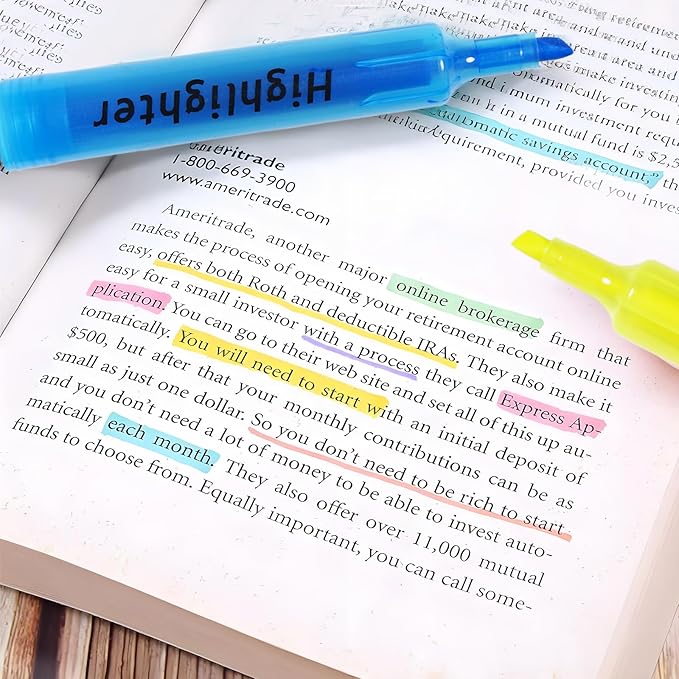 Highlighter
ovemext.
ese figures:
make investing
area and
omatically for you
mum investment requ
in a mutual fund is $2,5
automatic savings account," th
equirement, provided you inves
ameritrade
1-800-669-3900
www.ameritrade.com
Ameritrade, another major online brokerage firm that
makes the process of opening your retirement account online
easy, offers both Roth and deductible IRAs. They also make it
easy for a small investor with a process they call Express Ap-
plication. You can go to their web site and set all of this up au-
tomatically. You will need to start with an initial deposit of
$500, but after that your monthly contributions can be as
small as just one dollar. So you don't need to be rich to start
and you don't need a lot of money to be able to invest auto-
matically each month. They also offer over 11,000 mutual
funds to choose from. Equally important, you can call some-